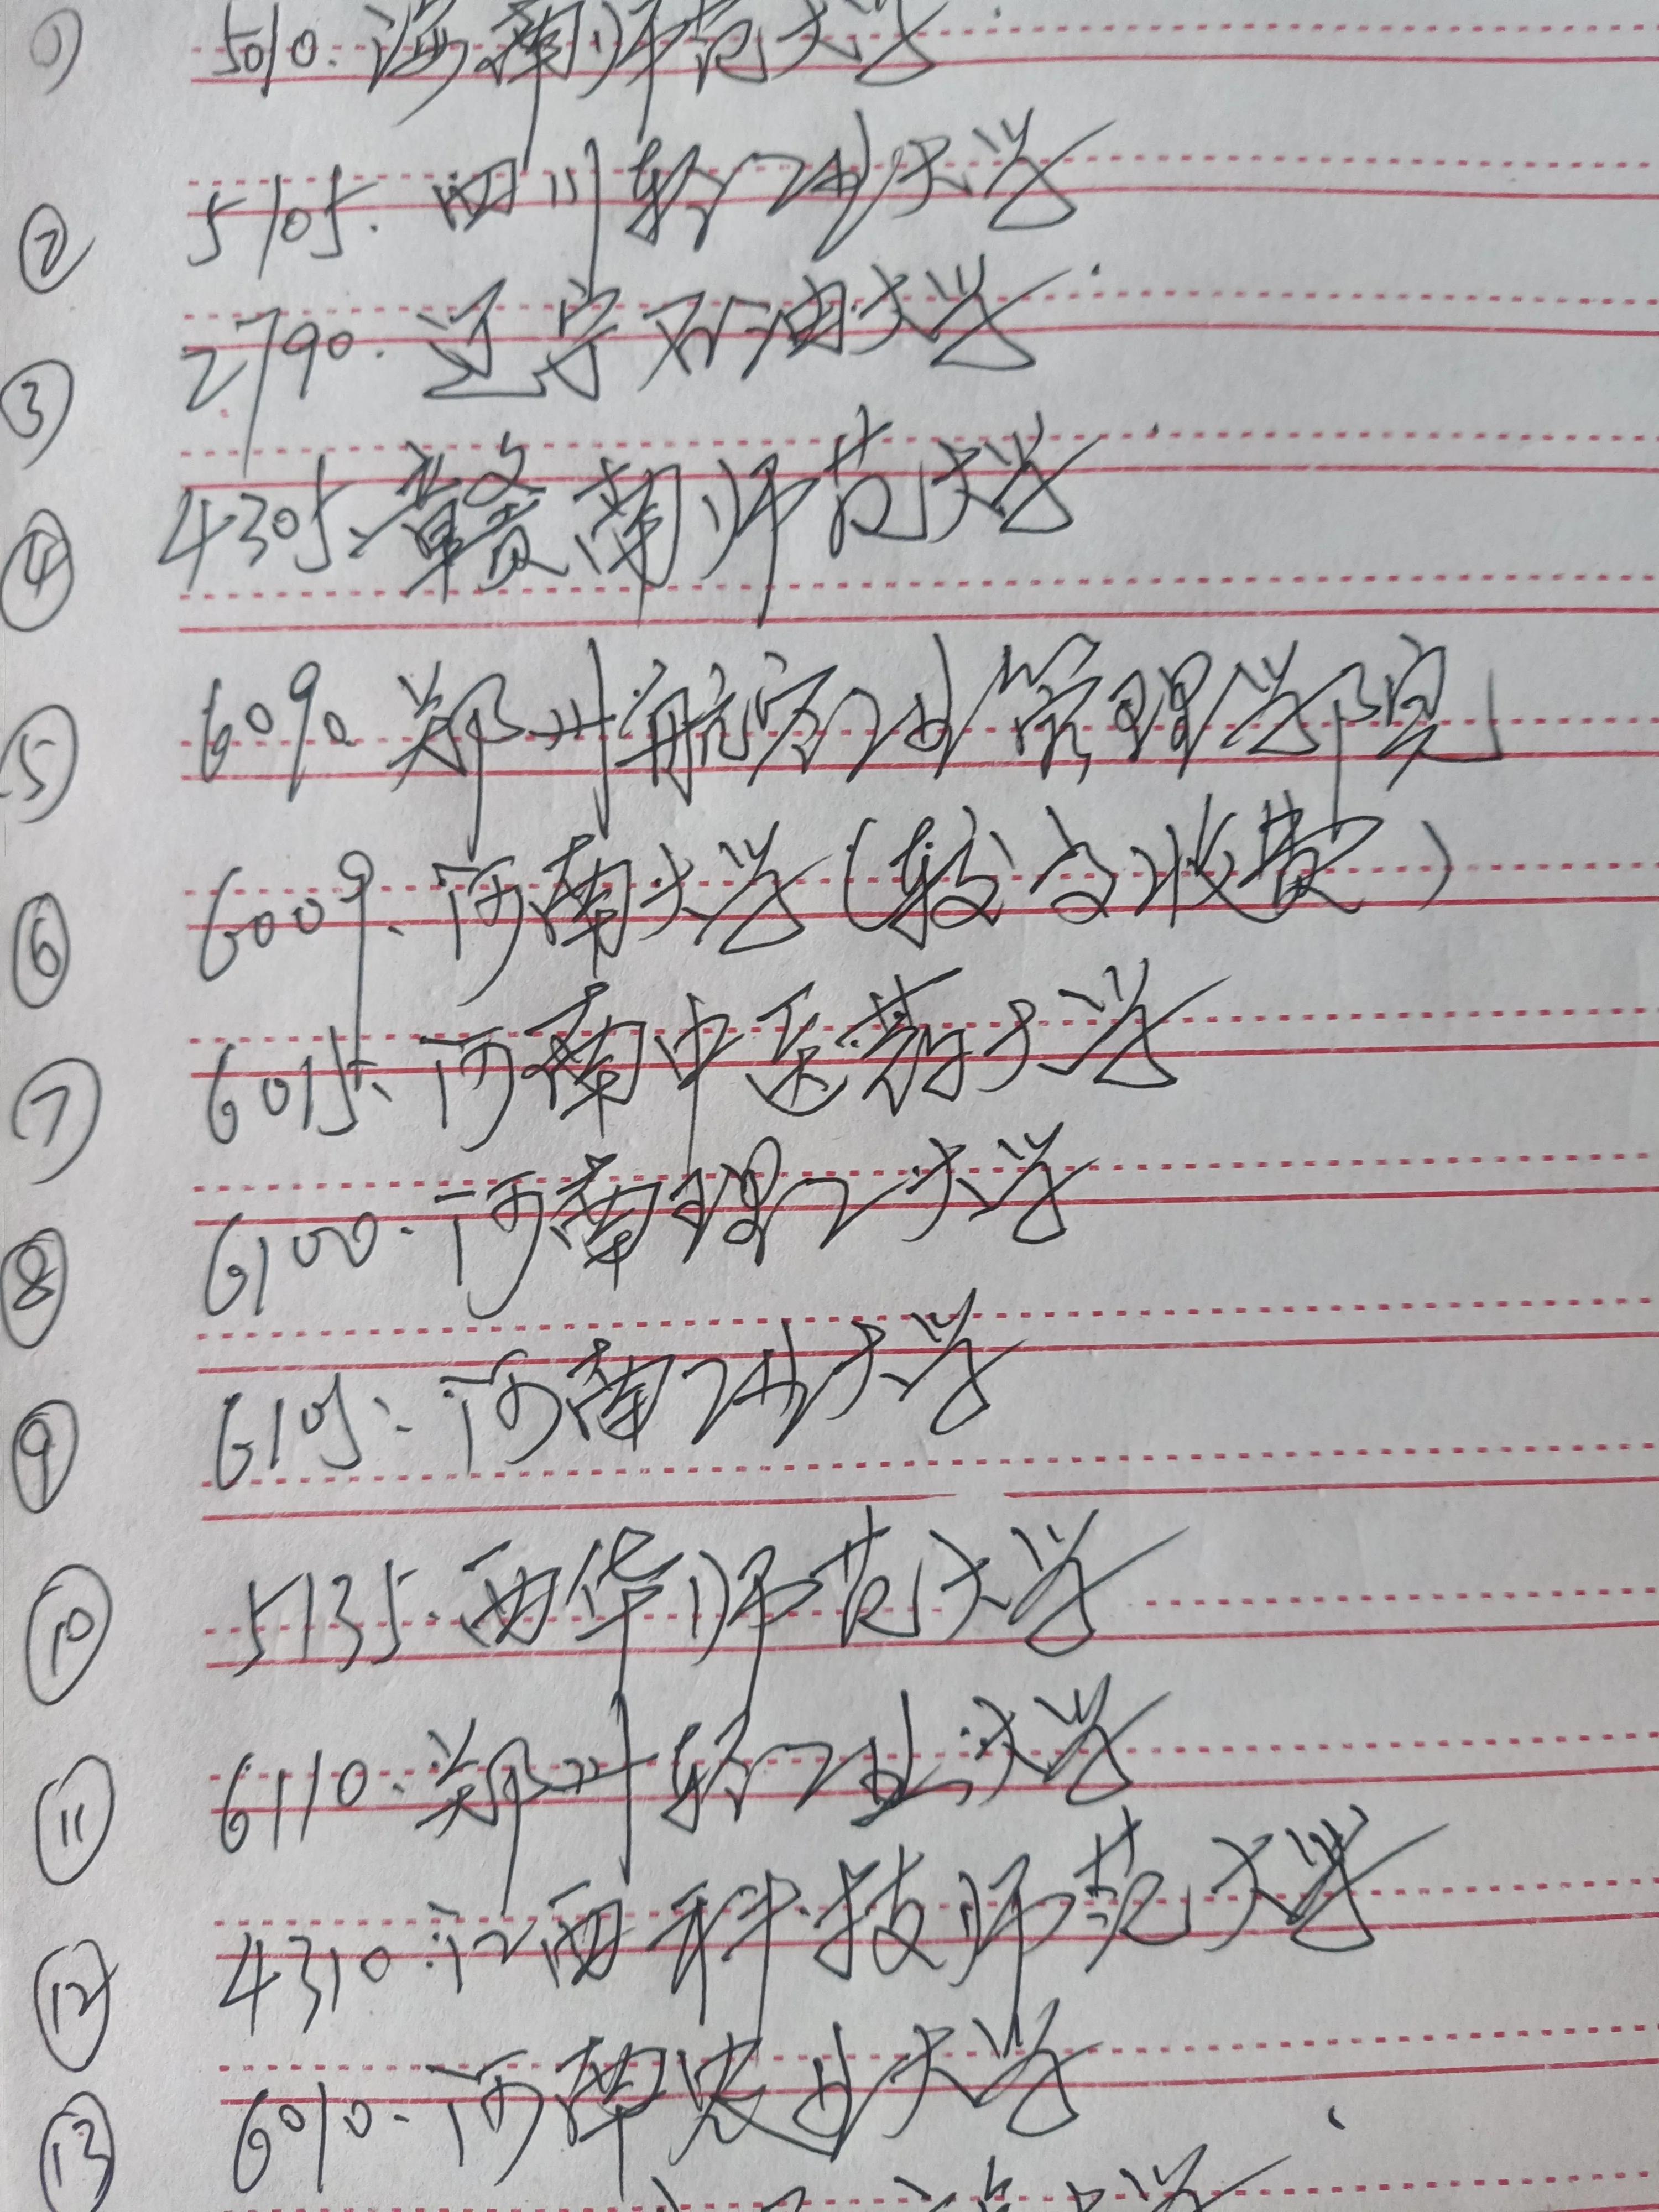 ① 5010. 海南师范大学
② 5105. 四川轻化工大学
③ 2790. 辽宁石油大学
④ 4305. 赣南师范大学
⑤ 6090 郑州航空工业管理学院
⑥ 6009. 河南大学(较高收费)
⑦ 6015. 河南中医药大学
⑧ 6100. 河南理工大学
⑨ 6105. 河南工业大学
⑩ 5135. 西华师范大学
⑪ 6110. 郑州轻工业大学
⑫ 4310. 江西科技师范大学
⑬ 6010. 河南农业大学